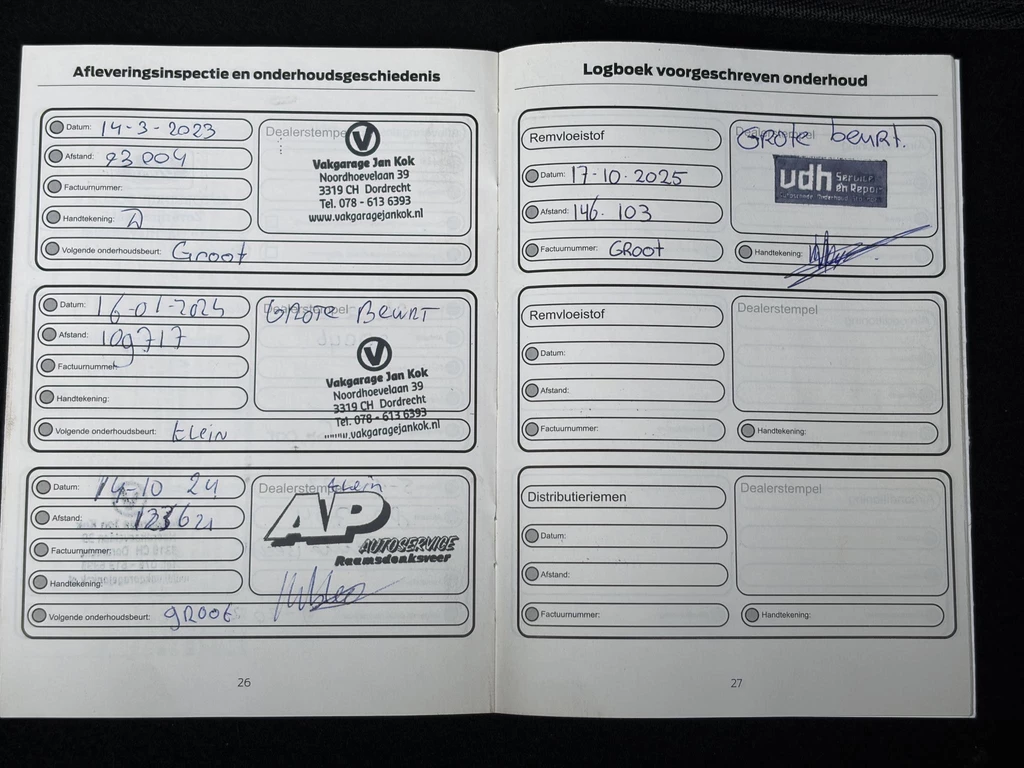 Afleveringsinspectie en onderhoudsgeschiedenis
Datum: 14-3-2023
Afstand: 93004
Factuurnummer:
Handtekening:
Volgende onderhoudsbeurt: Groot
Dealerstempel
Vakgarage Jan Kok
Noordhoevelaan 39
3319 CH Dordrecht
Tel. 078 - 613 6393
www.vakgaragejankok.nl
Datum: 16-01-2024
Afstand: 109717
Factuurnummer:
Handtekening:
Volgende onderhoudsbeurt: KLEIN
Dealerstempel
GROTE BEURT
Vakgarage Jan Kok
Noordhoevelaan 39
3319 CH Dordrecht
Tel. 078 - 613 6393
www.vakgaragejankok.nl
Datum: 14-10 24
Afstand: 123621
Factuurnummer:
Handtekening:
Volgende onderhoudsbeurt: gROOt
Dealerstempel
klein
AP
AUTOSERVICE
Raamsdonksveer
26
Logboek voorgeschreven onderhoud
Remvloeistof
Datum: 17-10-2025
Afstand: 146.103
Factuurnummer: GROOT
Dealerstempel
GROTE BEURT.
udh Service
en Repar
Handtekening:
Remvloeistof
Datum:
Afstand:
Factuurnummer:
Dealerstempel
Handtekening:
Distributieriemen
Datum:
Afstand:
Factuurnummer:
Dealerstempel
Handtekening:
27